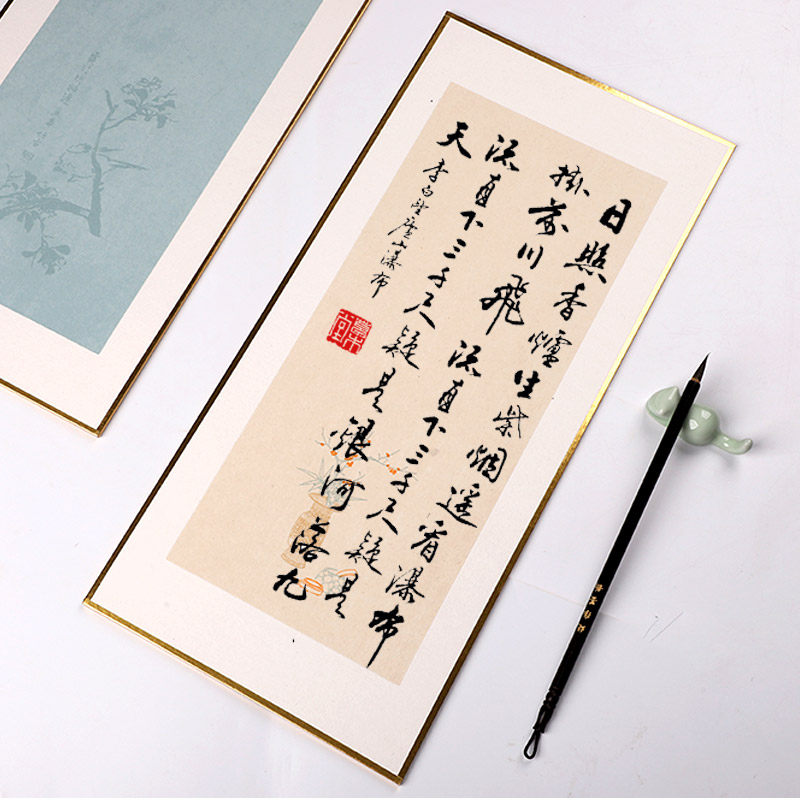 日照香爐生紫烟遥看瀑布
掛前川飛流直下三千尺疑是
流直下三千尺疑是銀河落九
天
李白望廬山瀑布